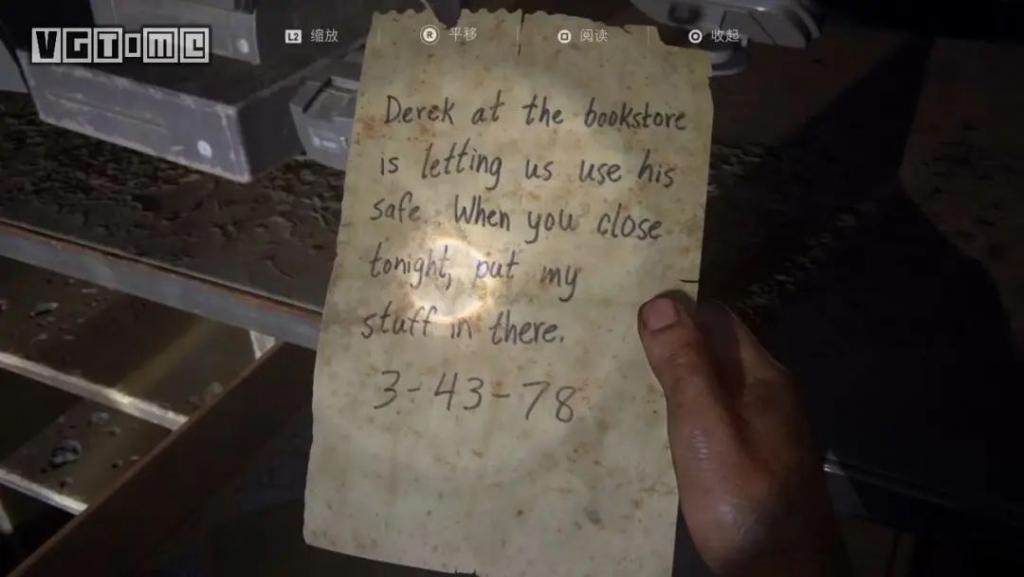 VGTIME
L2 缩放 R 平移 阅读 收起
Derek at the bookstore
is letting us use his
safe. When you close
tonight, put my
stuff in there.
3-43-78